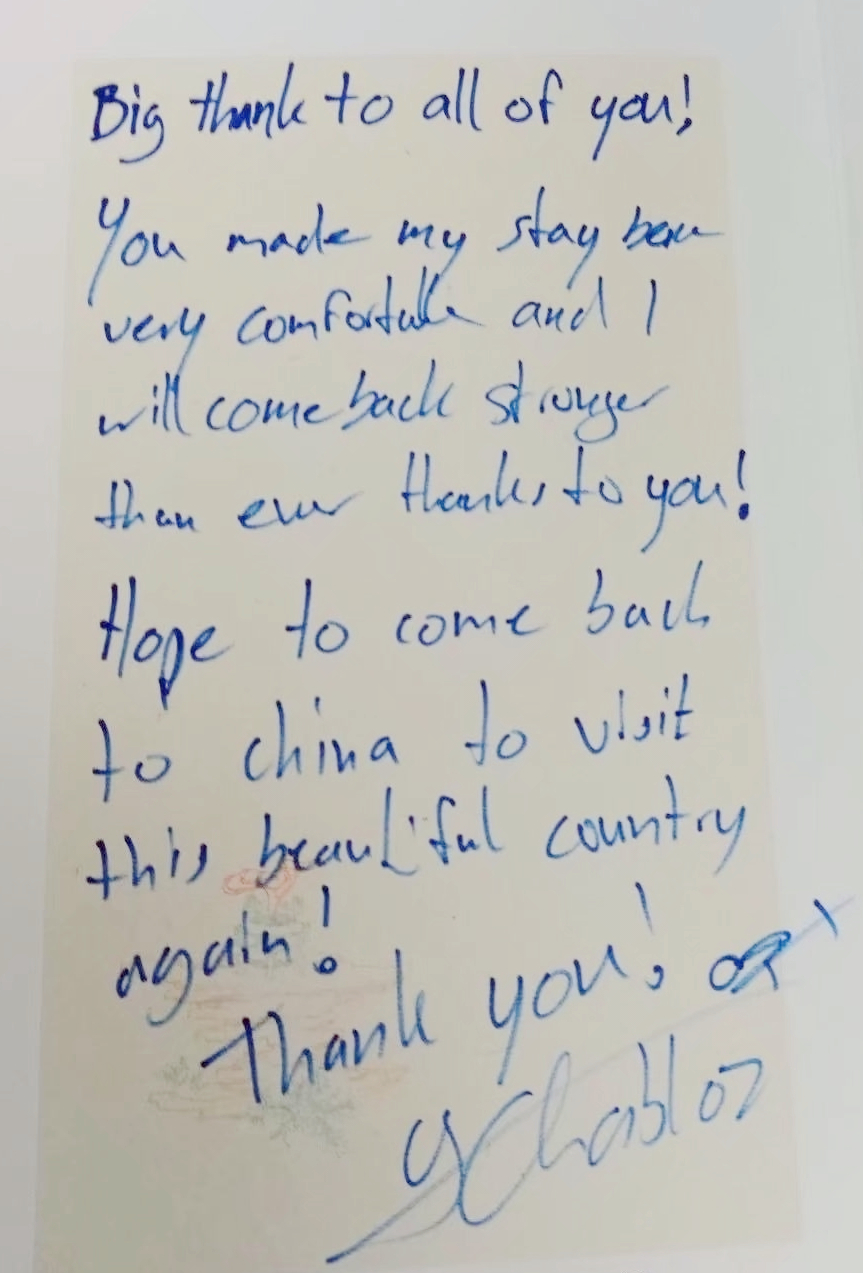 Big thank to all of you!
You made my stay been
very comfortable and I
will come back stronger
than ever thanks to you!
Hope to come back
to china to visit
this beautiful country
again!
Thank you!
Chabloz